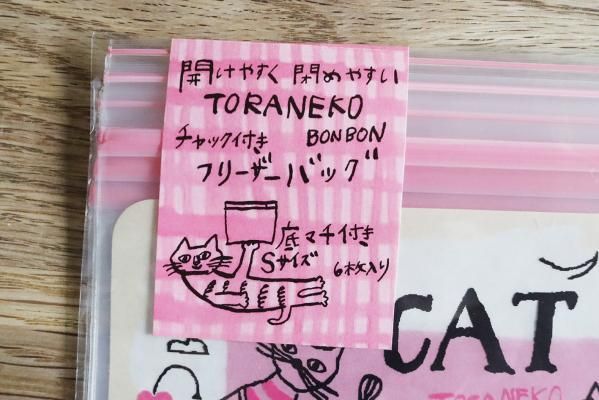 開けやすく 閉めやすい
TORANEKO
チャック付き BONBON
フリーザーバッグ
底マチ付き
Sサイズ 6枚入り
CAT
TORANEKO